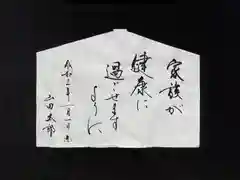 家族が
健康に
過ごせます
ように
令和三年一月一日
山田太郎